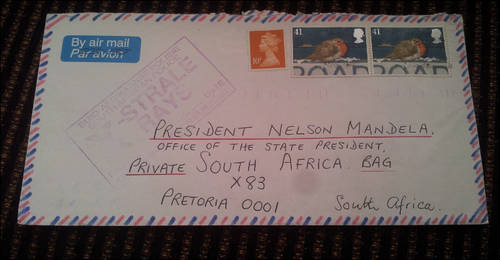 By air mail
Par avion
STRALE
BAYS
10P
41
41
ROAD
ROAD
PRESIDENT NELSON MANDELA,
OFFICE OF THE STATE PRESIDENT,
PRIVATE SOUTH AFRICA. BAG
X83
PRETORIA 0001
South Africa.